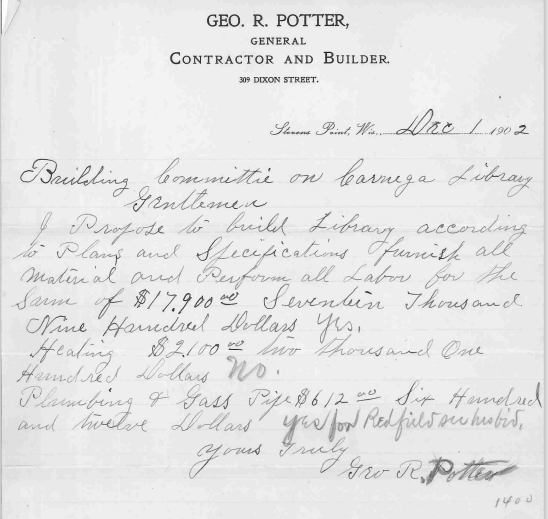 GEO. R. POTTER,
GENERAL
CONTRACTOR AND BUILDER.
309 DIXON STREET.
Stevens Point, Wis., Dec 1 1902
Building Committie on Carnega Library
Gentlemen
I Propose to build Library according
to Plans and Specifications furnish all
Material and Perform all Labor for the
Same of $17,900 00 Seventein Thousand
Nine Hundred Dollars Yes.
Heating $2,100 00 two thousand One
Hundred Dollars No.
Plumbing & Gass Pipe $612 00 Six Hundred
and twelve Dollars yes for Redfield see his bid.
yours Truly
Geo R. Potter
1400